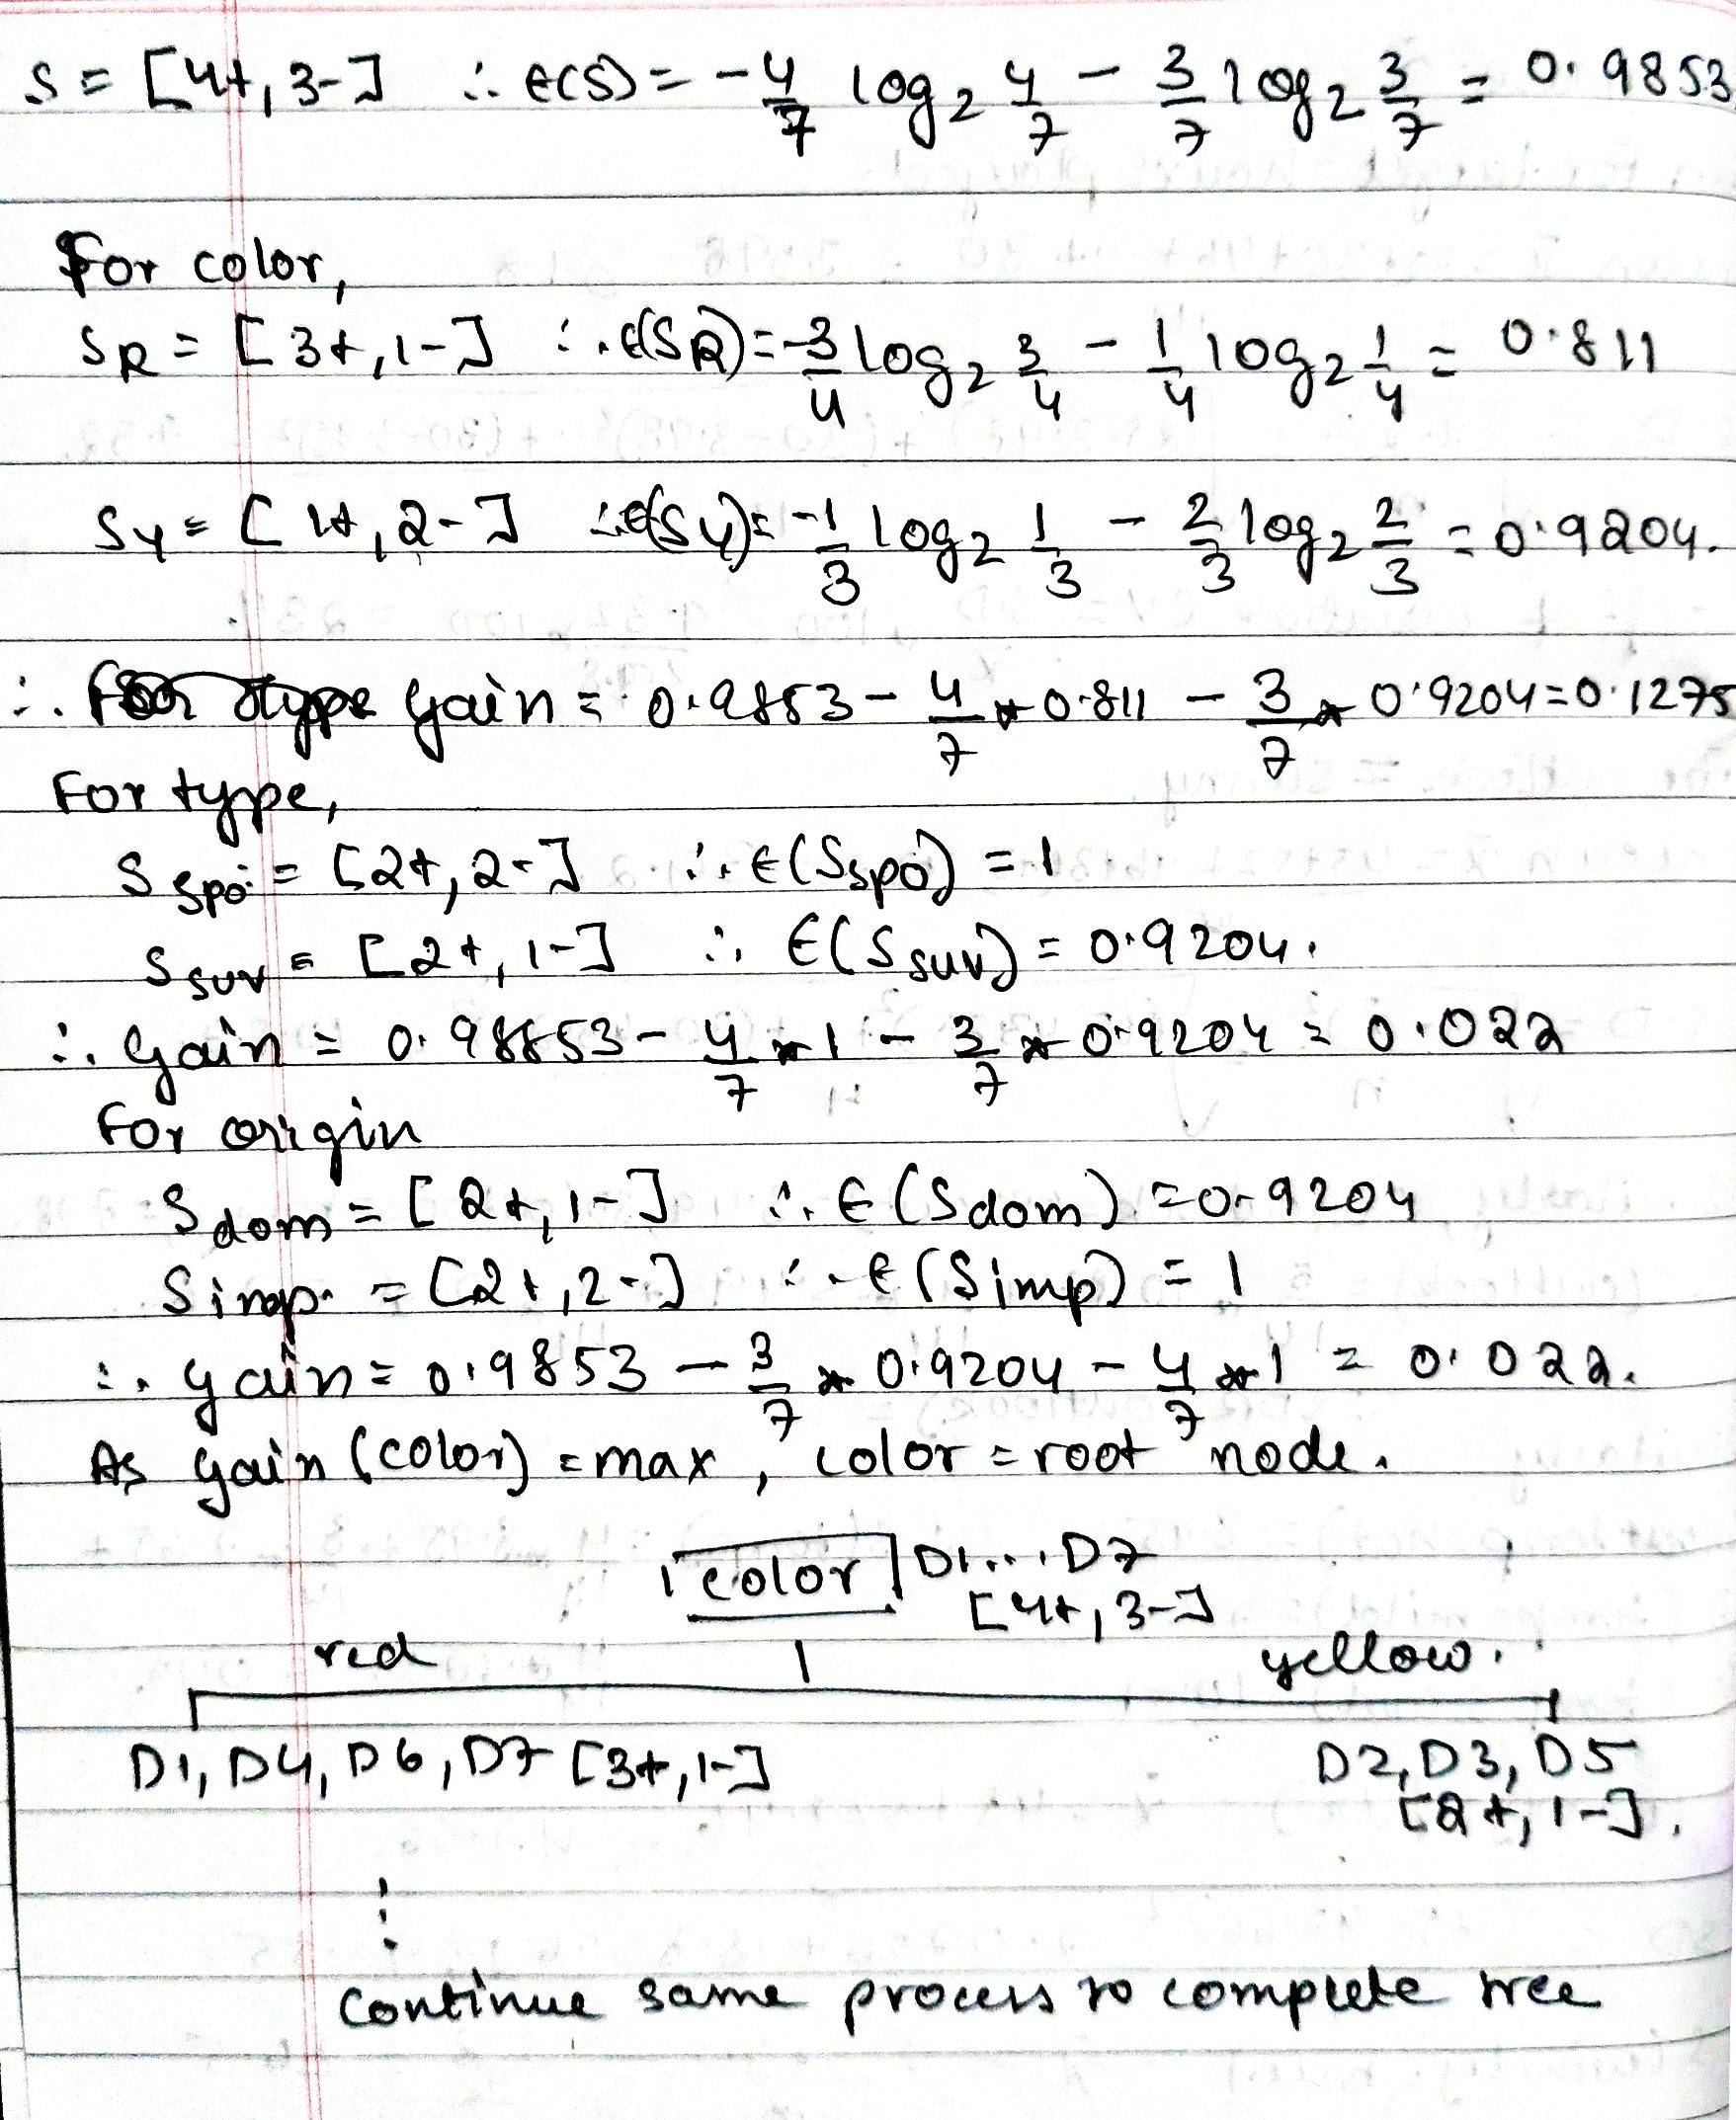 S = [4+, 3-] ∴ E(S) = -4/7 log2 4/7 - 3/7 log2 3/7 = 0.9853
For color,
SR = [3+, 1-] ∴ E(SR) = -3/4 log2 3/4 - 1/4 log2 1/4 = 0.811
Sy = [1+, 2-] ∴ E(Sy) = -1/3 log2 1/3 - 2/3 log2 2/3 = 0.9204.
∴ gain = 0.9853 - 4/7 * 0.811 - 3/7 * 0.9204 = 0.1275
For type,
Sspo. = [2+, 2-] ∴ E(Sspo) = 1
Ssuv = [2+, 1-] ∴ E(Ssuv) = 0.9204.
∴ Gain = 0.98853 - 4/7 * 1 - 3/7 * 0.9204 = 0.022
For origin
Sdom = [2+, 1-] ∴ E(Sdom) = 0.9204
Simp. = [2+, 2-] ∴ E(Simp) = 1
∴ gain = 0.9853 - 3/7 * 0.9204 - 4/7 * 1 = 0.022.
As gain (color) = max, color = root node.
color D1....D7
[4+, 3-]
red yellow.
D1, D4, D6, D7 [3+, 1-] D2, D3, D5
[2+, 1-].
Continue same process to complete tree